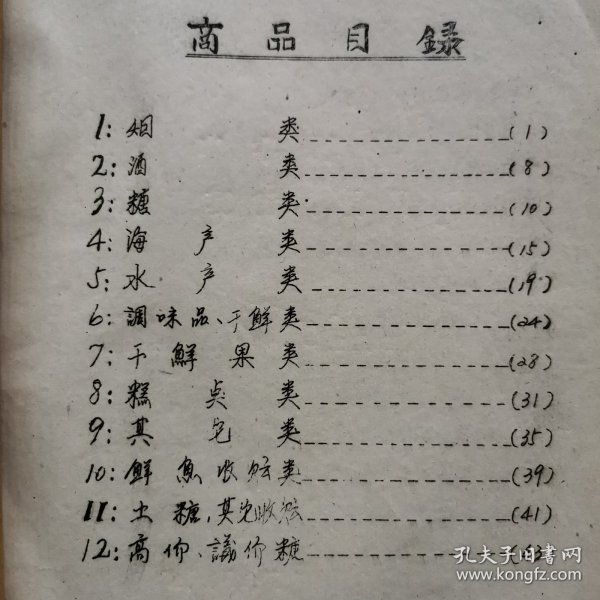 商品目録
1: 烟类 (1)
2: 酒类 (8)
3: 糖类 (10)
4: 海产类 (15)
5: 水产类 (19)
6: 調味品、干鮮类 (24)
7: 干鮮果类 (28)
8: 糕点类 (31)
9: 其它类 (35)
10: 鮮魚收购类 (39)
11: 土糖,其它收购 (41)
12: 高价、議价糖
孔夫子旧书网
www.kongfz.com